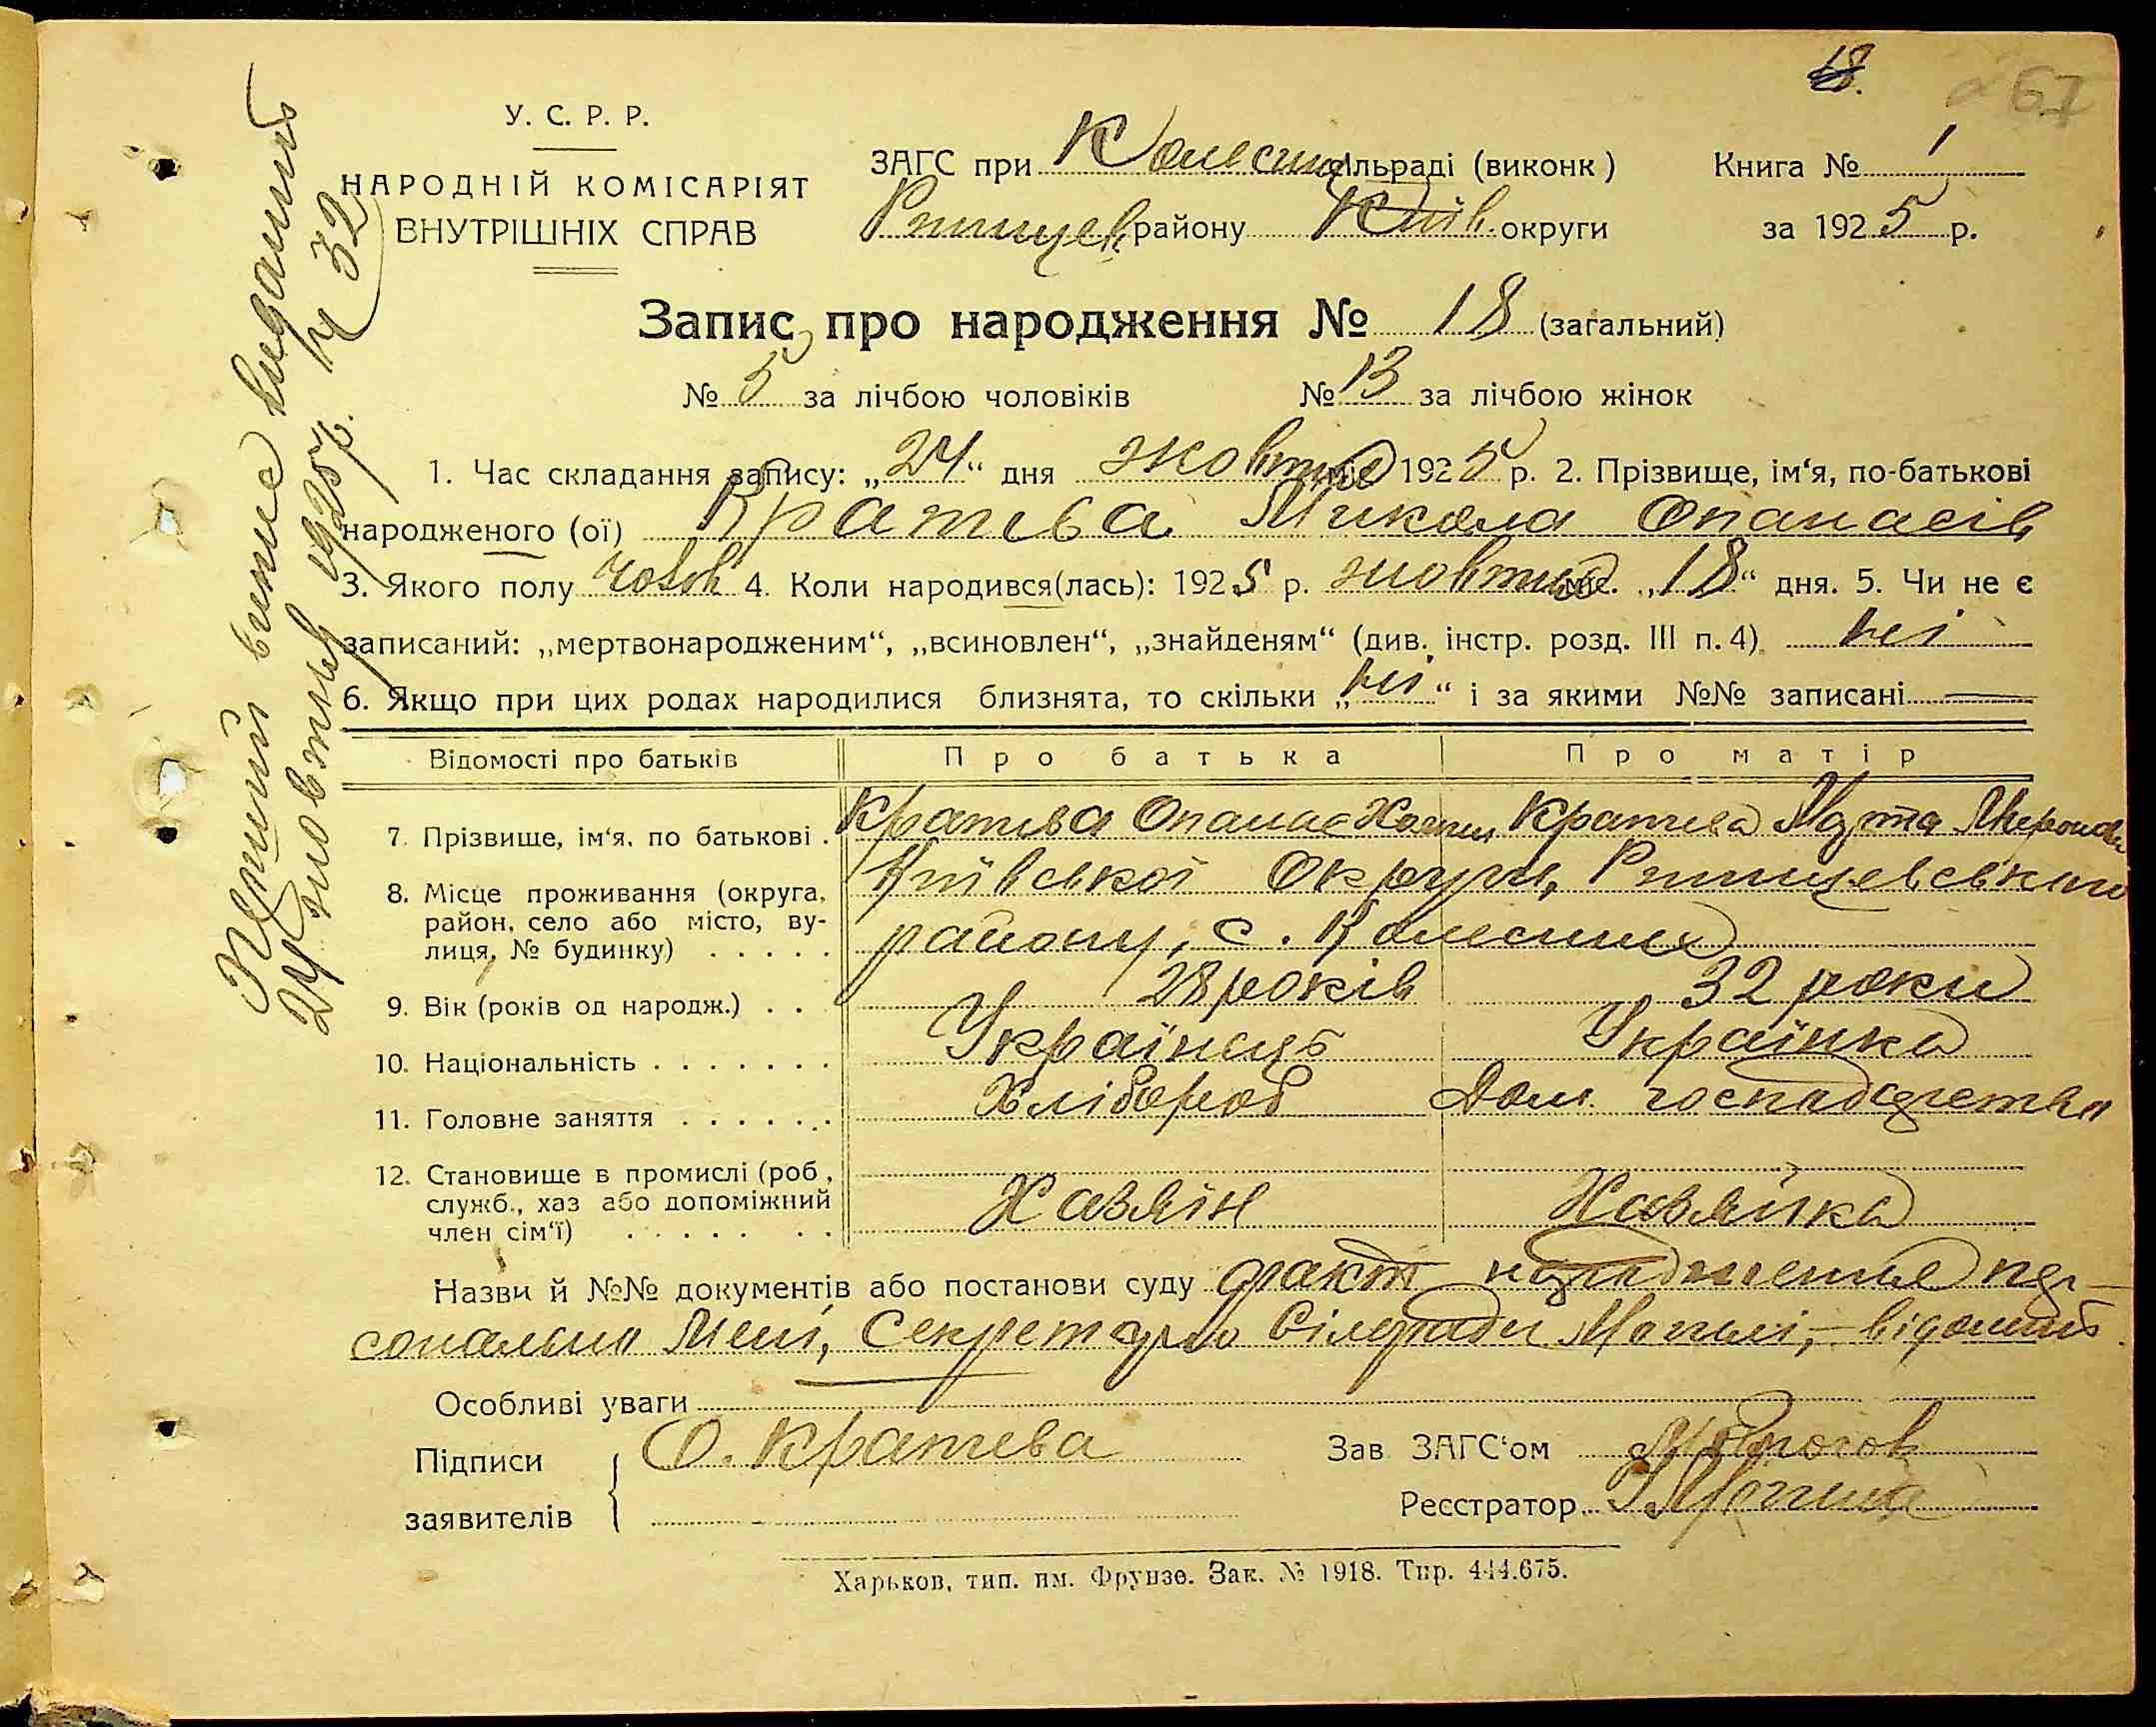 18.
67
У. С. Р. Р.
НАРОДНІЙ КОМІСАРІЯТ
ВНУТРІШНІХ СПРАВ
ЗАГС при сільраді (виконк)
Книга № 1
Ржищев району Київ. округи
за 1925 р.
Запис про народження № 18 (загальний)
№ 5 за лічбою чоловіків № 13 за лічбою жінок
1. Час складання запису: „24“ дня жовтня міс. 1925 р. 2. Прізвище, ім‘я, по-батькові
народженого (ої) Кратева Микола Опанасів
3. Якого полу чолов 4. Коли народився(лась): 1925 р. жовтня міс. „18“ дня. 5. Чи не є
записаний: „мертвонародженим“, „всиновлен“, „знайденям“ (див. інстр. розд. III п. 4) неі
6. Якщо при цих родах народилися близнята, то скільки „неі“ і за якими №№ записані
Відомості про батьків
Про батька
Про матір
7. Прізвище, ім‘я, по батькові . Кратева Опанас Кратева
8. Місце проживання (округа, район, село або місто, вулиця, № будинку) . . . . .
Київської Округи, Ржищевського
району, с.
9. Вік (років од народж.) . . 28 років 32 роки
10. Національність . . . . . . . Українець Українка
11. Головне заняття . . . . . . Хлібороб Дом. господарства
12. Становище в промислі (роб, служб., хаз або допоміжний член сім‘ї) . . . . . . .
Хазяїн Хазяйка
Назви й №№ документів або постанови суду факт народження пер-
сонально Мені, Секретарю Сілради Могилі, – відомий
Особливі уваги
Підписи
заявителів
О. Кратева
Зав ЗАГС‘ом
Реєстратор Могила
Харьков, тип. им. Фрунзе. Зак. № 1918. Тир. 444.675.
Перший випис виданий
24 жовтня 1925 р. Ч 32